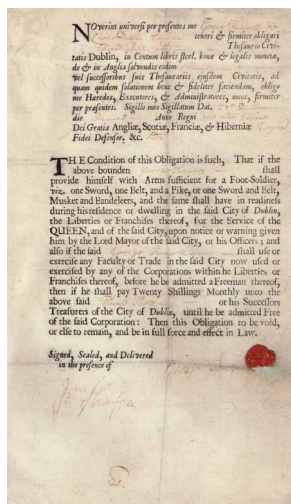 NOverint universi per presentes me
teneri & firmiter obligari
Thesaurio Civi-
tatis Dublin, in Centum libris sterl. bonæ & legalis monetæ,
de & in Anglia solvendis eidem
vel successoribus suis Thesaurariis ejusdem Civitatis, ad
quam quidem solutionem bene & fideliter faciendam, obligo
me Hæredes, Executores, & Administratores, meos, firmiter
per præsentes. Sigillo meo Sigillatum Dat.
die Anno Regni
Dei Gratia Angliæ, Scotiæ, Franciæ, & Hiberniæ
Fidei Defensor. &c.
THE Condition of this Obligation is such, That if the
above bounden shall
provide himself with Arms sufficient for a Foot-Soldier,
viz. one Sword, one Belt, and a Pike, or one Sword and Belt,
Musket and Bandeleers, and the same shall have in readiness
during his residence or dwelling in the said City of Dublin,
the Liberties or Franchises thereof, for the Service of the
QUEEN, and of the said City, upon notice or warning given
him by the Lord Mayor of the said City, or his Officers; and
also if the said shall use or
exercise any Faculty or Trade in the said City now used or
exercised by any of the Corporations within he Liberties or
Franchises thereof, before he be admitted a Freeman thereof,
then if he shall pay Twenty Shillings Monthly unto the
above said or his Successors
Treasurers of the City of Dublin, until he be admitted Free
of the said Corporation: Then this Obligation to be void,
or else to remain, and be in full force and effect in Law.
Signed, Sealed, and Delivered
in the presence of